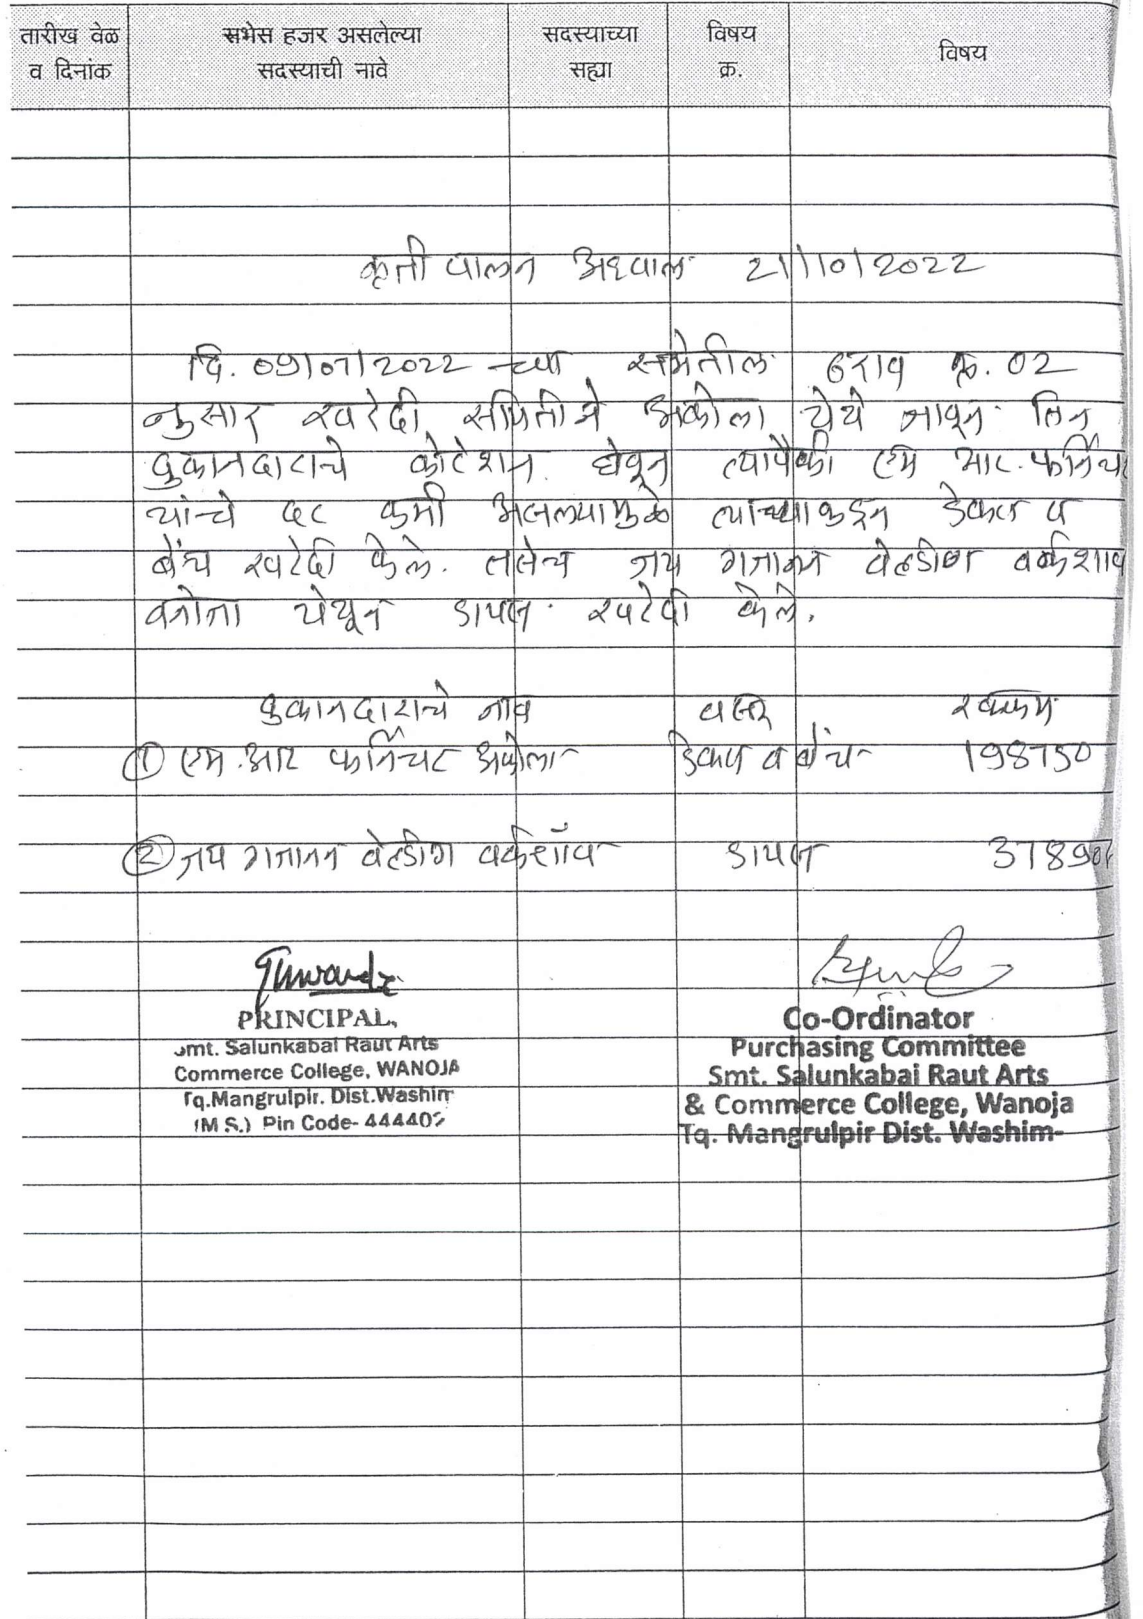 तारीख वेळ व दिनांक
सभेस हजर असलेल्या सदस्याची नावे
सदस्याच्या सह्या
विषय क्र.
विषय
कृती पालन अहवाल 21/10/2022
दि. 07/07/2022 च्या सभेतील ठराव क्र. 02
नुसार खरेदी समितीने अकोला येथे जावून तिन
दुकानदाराचे कोटेशन घेवून त्यापैकी एम आर. फर्निचर
यांचे दर कमी असल्यामुळे त्यांच्याकडून डेक्स व
बेंच खरेदी केले. तसेच जय गजानन वेल्डींग वर्कशाप
वनोजा येथून डायस खरेदी केले.
दुकानदाराचे नाव वस्तू रक्कम
① एम.आर फर्निचर अकोला डेक्स व बेंच 198750
② जय गजानन वेल्डींग वर्कशॉप डायस
PRINCIPAL,
Smt. Salunkabai Raut Arts
Commerce College, WANOJA
Tq.Mangrulpir. Dist.Washim
(M S.) Pin Code- 444402
Co-Ordinator
Purchasing Committee
Smt. Salunkabai Raut Arts
& Commerce College, Wanoja
Tq. Mangrulpir Dist. Washim-